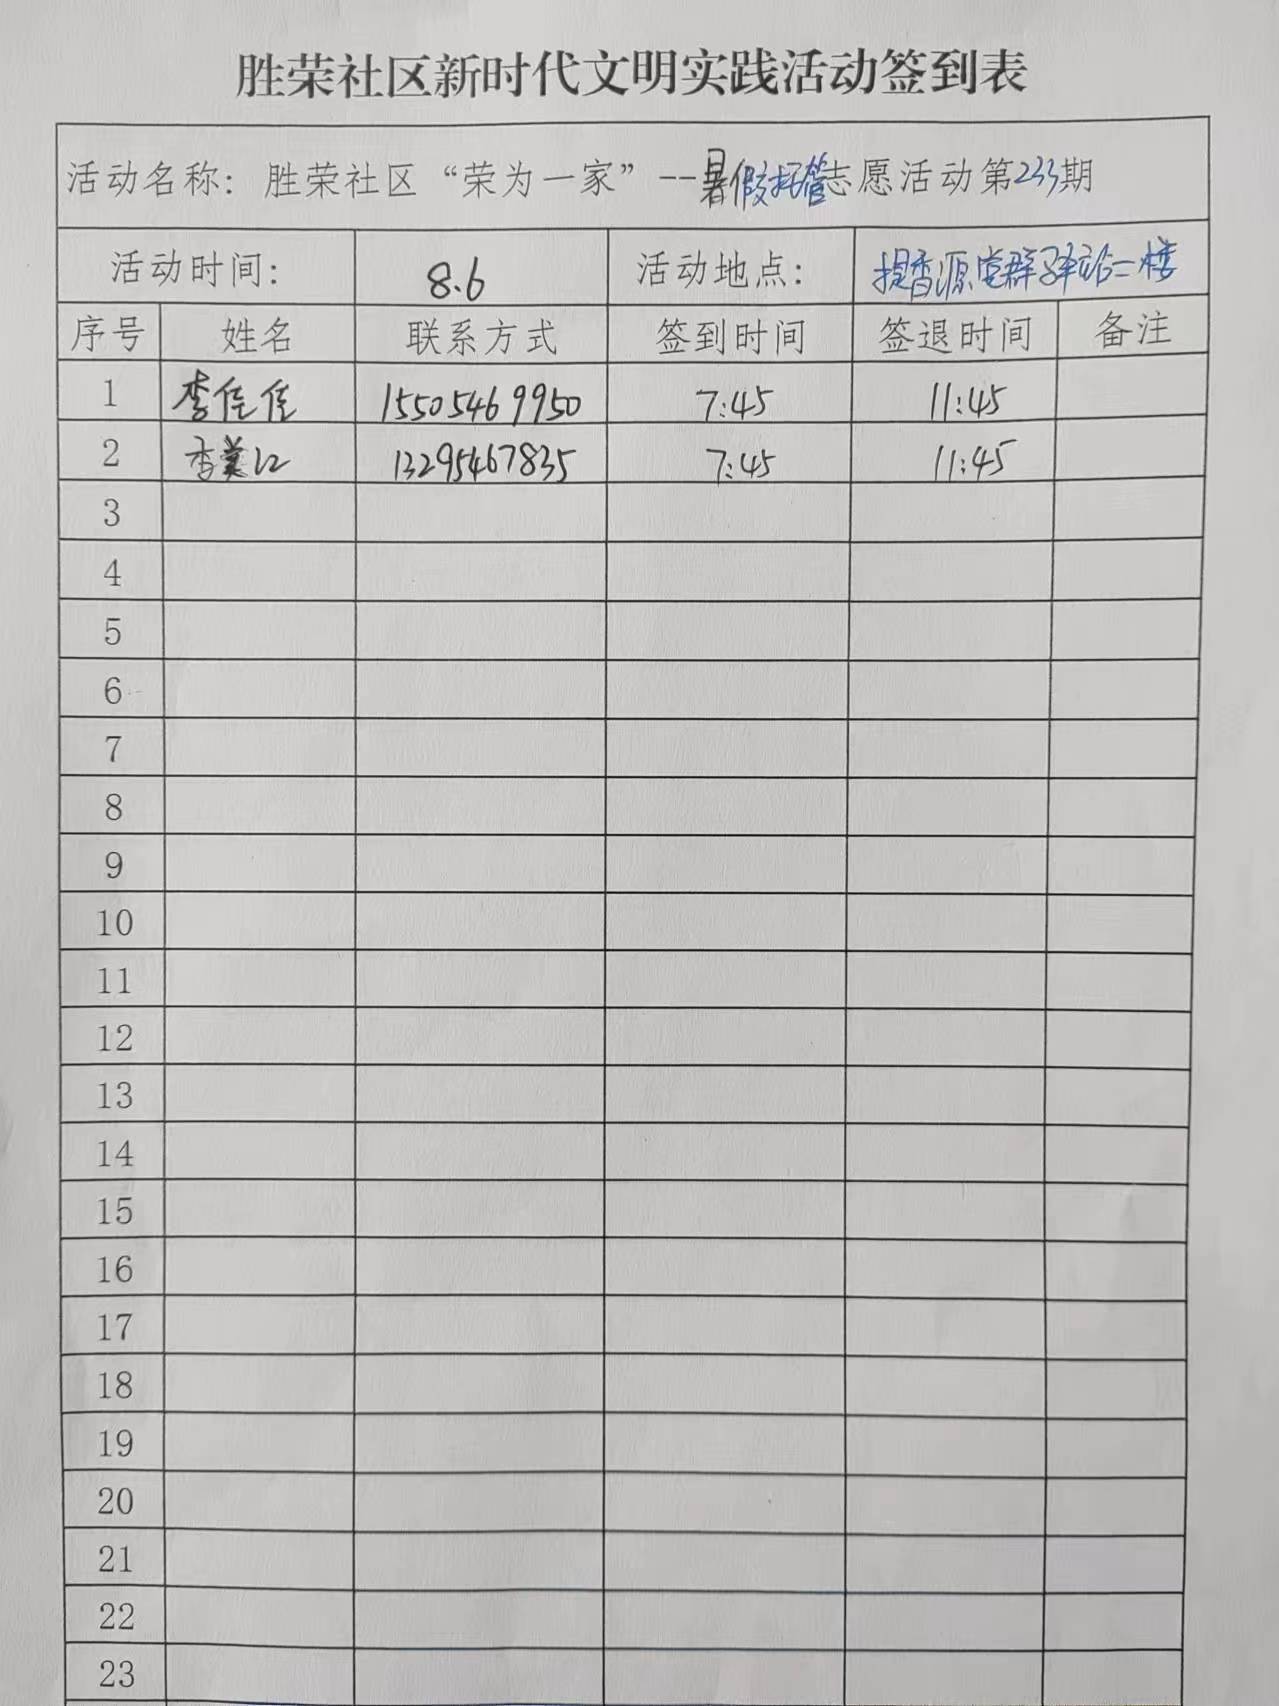 胜荣社区新时代文明实践活动签到表
活动名称：胜荣社区“荣为一家”--暑假托管志愿活动第233期
活动时间： 8.6 活动地点： 提香源党群驿站二楼
序号 姓名 联系方式 签到时间 签退时间 备注
1 李佳佳 15505469950 7:45 11:45
2 李 13295467835 7:45 11:45
3
4
5
6
7
8
9
10
11
12
13
14
15
16
17
18
19
20
21
22
23